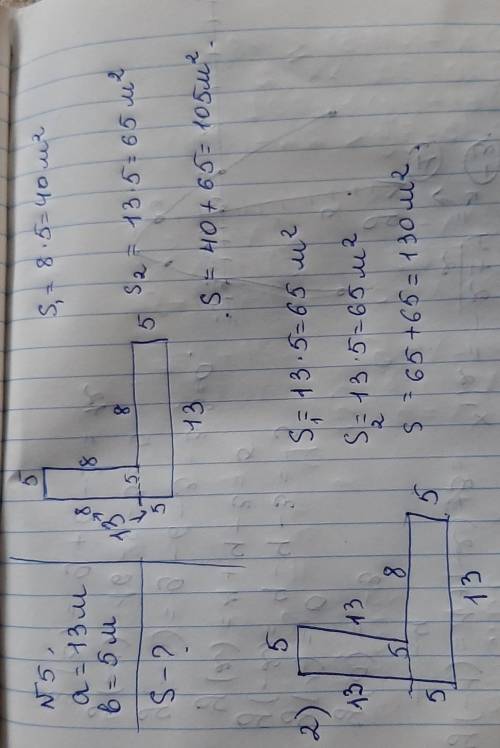 №5.
a = 13 м
в = 5 м
S - ?
5
8
8
13
5
5
8
5
13
S₁ = 8 · 5 = 40 м²
S₂ = 13 · 5 = 65 м²
S = 40 + 65 = 105 м².
2)
5
13
13
5
5
8
5
13
S₁ = 13 · 5 = 65 м²
S₂ = 13 · 5 = 65 м²
S = 65 + 65 = 130 м².